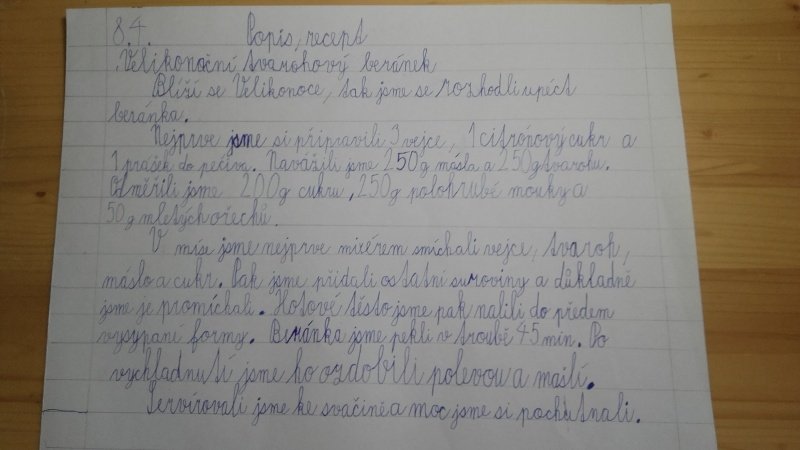 8.4. Popis, recept
Velikonoční tvarohový beránek
Blíží se Velikonoce, tak jsme se rozhodli upéct
beránka.
Nejprve jsme si připravili 3 vejce, 1 citrónový cukr a
1 prášek do pečiva. Navážili jsme 250g másla a 250g tvarohu.
Odměřili jsme 200g cukru, 250g polohrubé mouky a
50g mletých ořechů.
V míse jsme nejprve mixérem smíchali vejce, tvaroh,
máslo a cukr. Pak jsme přidali ostatní suroviny a důkladně
jsme je promíchali. Hotové těsto jsme pak nalili do předem
vysypaní formy. Beránka jsme pekli v troubě 45 min. Po
vychladnutí jsme ho ozdobili polevou a mašlí.
Servírovali jsme ke svačině a moc jsme si pochutnali.